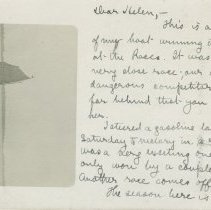 Dear Helen,—
This is a
of my boat winning
at the Races. It was
very close race; our
dangerous competitor
far behind that you
her.
I steered a gasoline la
Saturday
was a very exciting one
only won by a couple
Another race comes off
The season here is